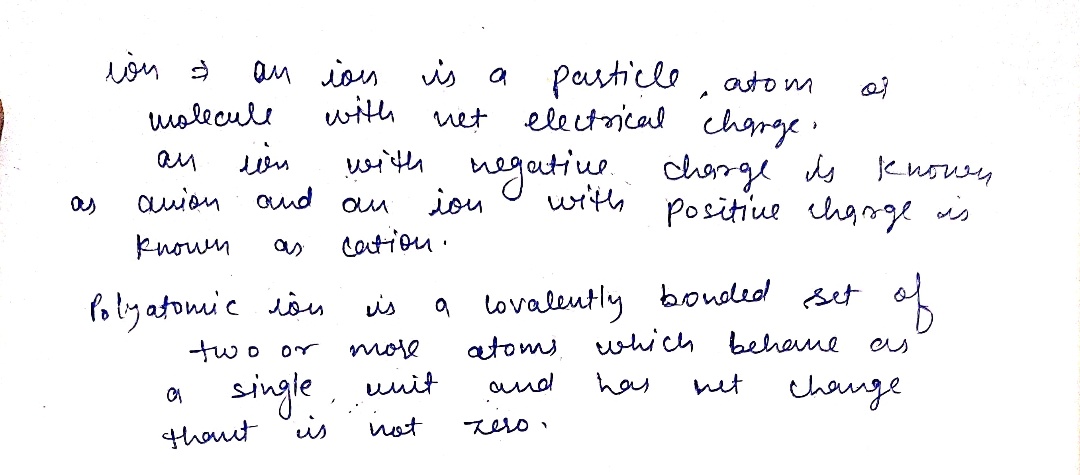 ion ⇒ an ion is a particle, atom or
molecule with net electrical charge.
an ion with negative charge is known
as anion and an ion with positive charge is
known as cation.
Polyatomic ion is a covalently bonded set of
two or more atoms which behave as
a single unit and has net change
thant is not zero.